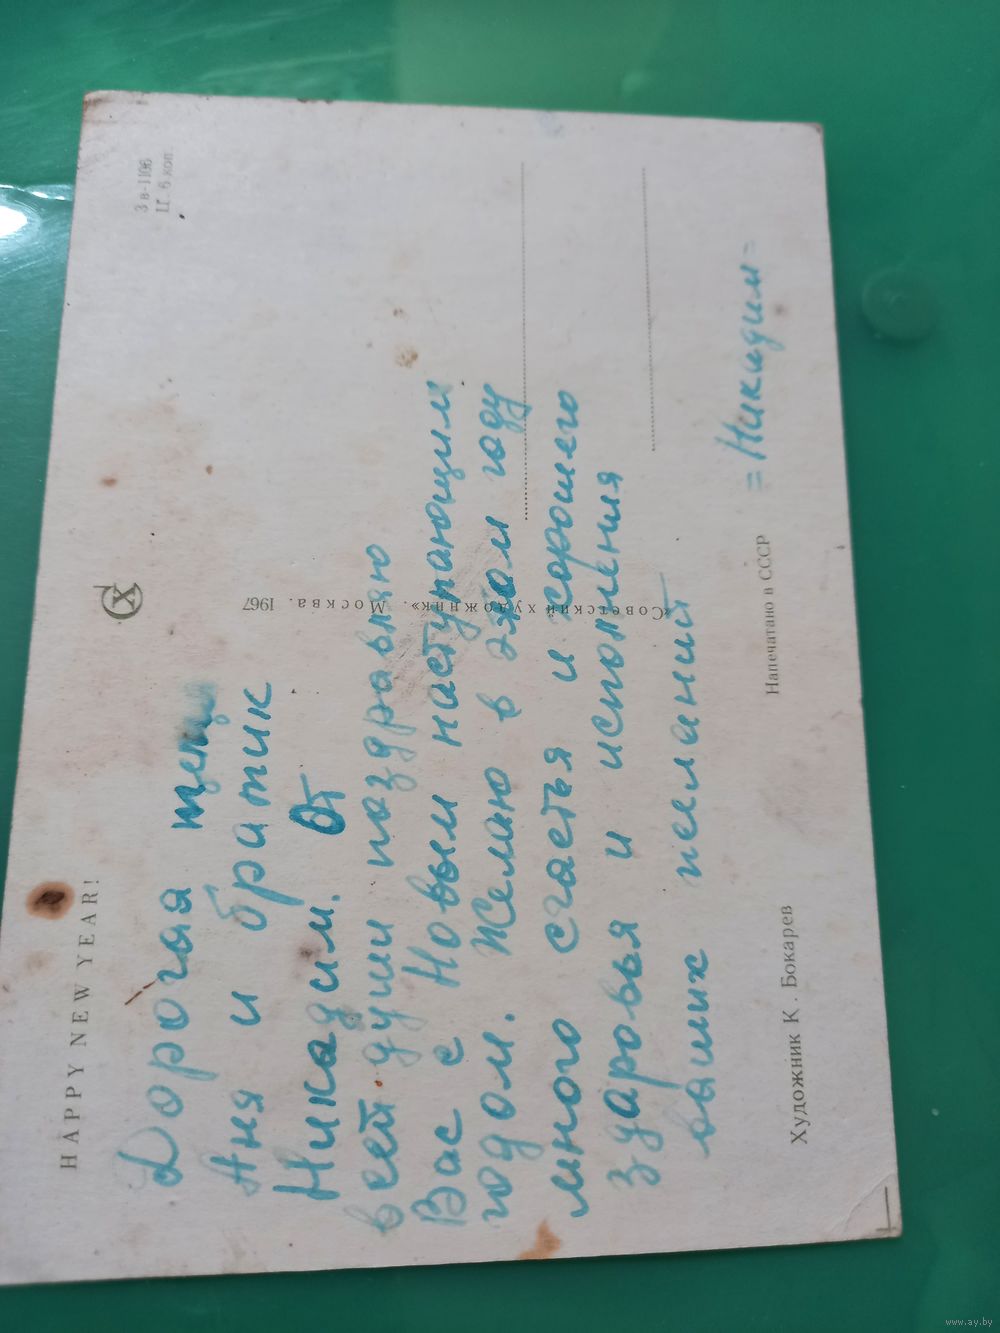 HAPPY NEW YEAR!
З в-1106
Ц. 6 коп.
Дорогая
Аня и братик
Никадим. От
всей души поздравляю
Вас с Новым наступающим
годом. Желаю в этом году
много счастья и хорошего
здоровья и исполнения
ваших желаний
=Никидим=
«Советский художник». Москва. 1967
Художник К. Бокарев
Напечатано в СССР
www.ay.by